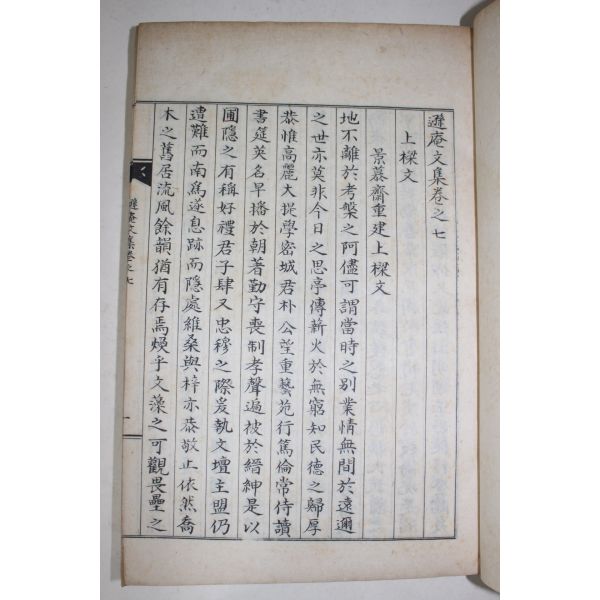 遯庵文集卷之七
上樑文
景慕齋重建上樑文
地不離於考槃之阿儘可謂當時之別業情無間於遠邇
之世亦莫非今日之思亭傳薪火於無窮知民德之歸厚
恭惟高麗大提學密城君朴公望重藝苑行篤倫常侍讀
書筵英名早播於朝著勤守喪制孝聲遍被於縉紳是以
圃隱之有稱好禮君子肆又忠穆之際爰執文壇主盟仍
遭難而南爲遂息跡而隱處維桑與梓亦恭敬止依然喬
木之舊居流風餘韻猶有存焉煥乎文藻之可觀畏壘之
遯庵文集卷之七
一